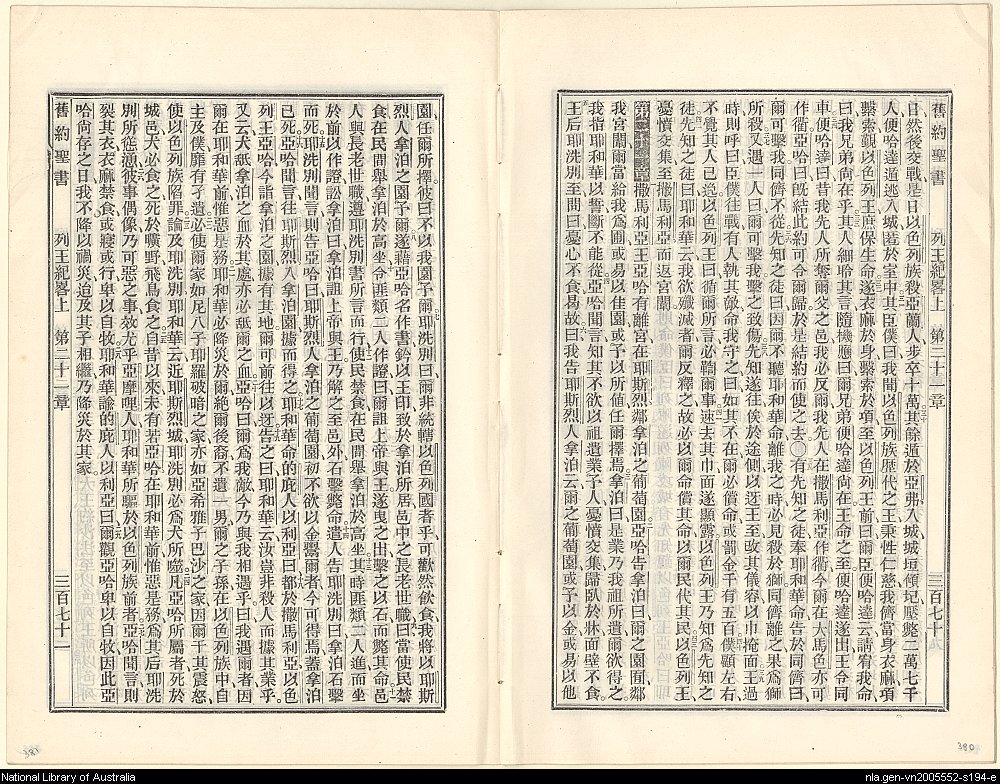 舊約聖書 列王紀畧上 第二十一章 三百七十
日然後交戰是日以色列族殺亞蘭人步卒十萬其餘遁於亞弗入城城垣傾圮壓斃二萬七千
人便哈達遁逃入城匿於室中其臣僕曰我聞以色列族歷代之王秉性仁慈我儕當身衣麻項
繫索覲以色列王庶保生命遂衣麻於身繫索於項至以色列王前曰爾臣便哈達云請宥我命
曰我兄弟尚在乎其人細聆其言隨機應曰爾兄弟便哈達尚在王命之至便哈達遂出王令同
車便哈達曰昔我先人所奪爾父之邑我必反爾我先人在撒馬利亞作衢今爾在大馬色亦可
作衢亞哈曰旣結此約可令爾歸於是結約而使之去〇有先知之徒奉耶和華命告於同儕曰
爾可擊我同儕不從先知之徒曰因爾不聽耶和華命離我之時必見殺於獅同儕離之果爲獅
所殺又遇一人曰爾可擊我擊之致傷先知遂往俟於途側以迓王至改其儀容以巾掩面王過
時則呼曰臣僕往戰有人執其敵命我守之曰如其不在爾必償命或罰金千有五百僕顧左右
不覺其人已逸以色列王曰循爾所言必鞫爾事速去其巾面遂顯露以色列王乃知爲先知之
徒先知之徒曰耶和華云我欲殲滅者爾反釋之故必以爾命償其命以爾民代其民以色列王
憂憤交集至撒馬利亞而返宮闕
撒馬利亞王亞哈有離宮在耶斯烈鄰拿泊之葡萄園亞哈告拿泊曰爾之園鄰
我宮闕爾當給我爲圃或易以佳園或予以所値任爾擇焉拿泊曰是業乃我祖所遺爾欲得之
我指耶和華以誓斷不能從亞哈聞言知其不欲以祖遺業予人憂憤交集歸臥於牀面壁不食
王后耶洗別至問曰憂心不食曷故曰我告耶斯烈人拿泊云爾之葡萄園或予以金或易以他
園任爾所擇彼曰不以我園予爾耶洗別曰爾非統轄以色列國者乎可歡然飲食我將以耶斯
烈人拿泊之園予爾遂藉亞哈名作書鈐以王印致於拿泊所居邑中之長老世職曰當使民禁
食在民間舉拿泊於高坐令匪類二人作證曰爾詛上帝與王遂曳之出擊之以石而斃其命邑
人與長老世職遵耶洗別書所言而行使民禁食在民間舉拿泊於高坐其時匪類二人進而坐
於前以作證訟拿泊曰拿泊詛上帝與王乃解之至邑外石擊斃命遣人告耶洗別曰拿泊石擊
而死耶洗別聞言則告亞哈曰耶斯烈人拿泊之葡萄園初不欲以金鬻爾者今可得焉蓋拿泊
已死亞哈聞言往耶斯烈人拿泊園據而得之耶和華命的庇人以利亞曰都於撒馬利亞以色
列王亞哈今詣拿泊之園據有其地爾可前往以迓告之曰耶和華云汝豈非殺人而據其業乎
又云犬餂拿泊之血於其處亦必餂爾之血亞哈曰爾爲我敵今乃與我相遇乎曰我遇爾者因
爾在耶和華前惟惡是務耶和華必降災於爾絶爾後裔不遺一男爾之子孫在以色列族中自
主及僕靡有孑遺必使爾家如尼八子耶羅破暗之家亦如亞希雅子巴沙之家因爾干其震怒
使以色列族陷罪論及耶洗別耶和華云近耶斯烈城耶洗別必爲犬所噬凡亞哈所屬者死於
城邑犬必食之死於曠野飛鳥食之自昔以來未有若亞哈在耶和華前惟惡是務爲其后耶洗
別所慫慂彼事偶像乃可惡之事效尤乎亞摩哩人耶和華所驅於以色列族前者亞哈聞言則
裂其衣衣麻禁食或寢或行卑以自牧耶和華諭的庇人以利亞曰爾觀亞哈卑以自牧因此亞
哈尚存之日我不降以禍災迨及其子相繼乃降災於其家
舊約聖書 列王紀畧上 第二十一章 三百七十一
381
380
National Library of Australia
nla.gen-vn2005552-s194-e